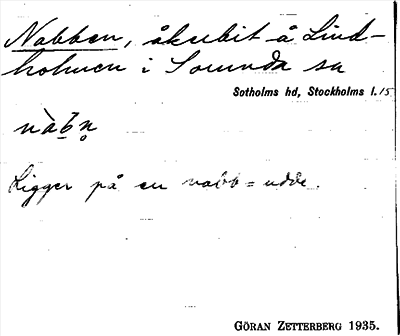 Nabben, åkerbit å Lind-
holmen i Sorunda sn
Sotholms hd, Stockholms l. 15
nàb̲n̥
Ligger på en nabb = udde.
GÖRAN ZETTERBERG 1935.